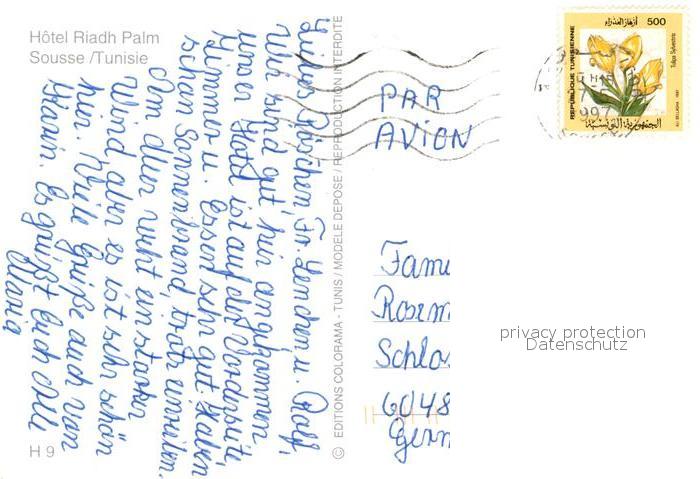 Hôtel Riadh Palm
Sousse /Tunisie
Liebes Fr. Lenchen u. Ralf,
Wir sind gut hir angekommen
unser Hotel ist auf der Vorderseite,
Zimmer u. Essen sehr gut. Haben
schon Sonnenbrand, trotz
Am Meer weht ein starker
Wind, aber es ist sehr schön
hier. Viele Grüße auch von
Es grüßt Euch Alle
Maria
H 9
© EDITIONS COLORAMA - TUNIS / MODELE DEPOSE / REPRODUCTION INTERDITE
PAR
AVION
500
REPUBLIQUE TUNISIENNE
Tulipa Sylvestris
الجمهورية التونسية
Fami
Rosem
Schlo
6048
Germ
privacy protection
Datenschutz